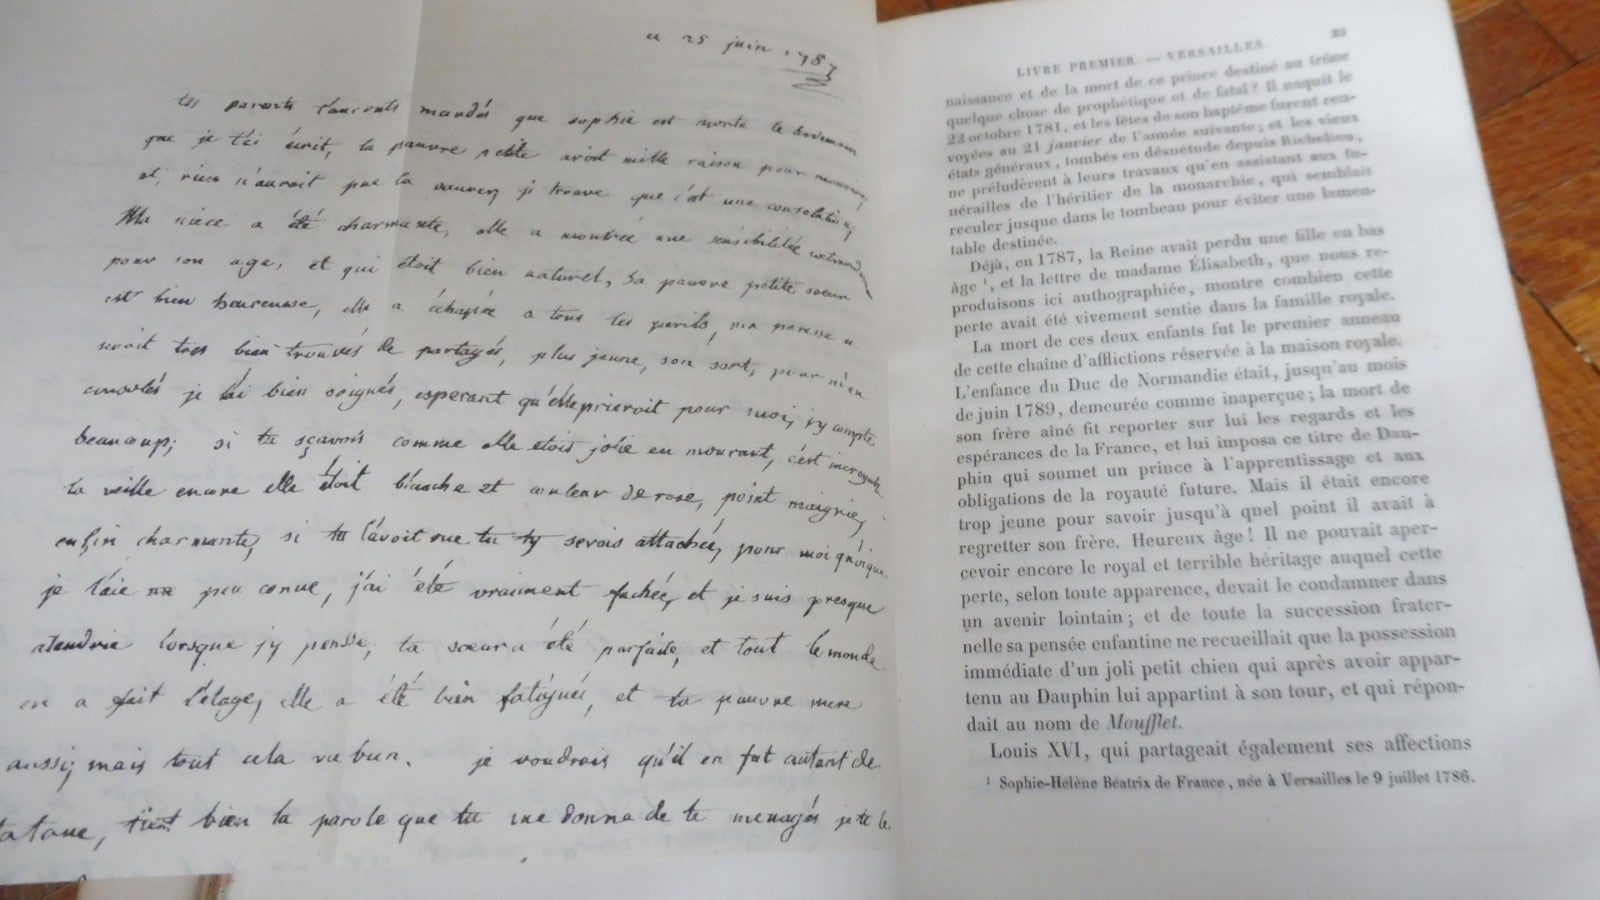 ce 25 juin 1787
tes parents t'auronts mandés que sophie est morte le
que je t'ai écrit, la pauvre petite avoit mille raison pour mourire,
et, rien n'auroit pue la sauver, je trouve que c'est une consolation;
Ma niece a été charmante, elle a montrée une sensibilitée
pour son age, et qui étoit bien naturel, sa pauvre petite sœur
est bien heureusse, elle a échapée a tous les perils, ma paresse
seroit tres bien trouvés de partagés, plus jeune, son sort, pour m'en
consolés je l'ai bien soignés, esperant qu'elle prieroit pour moi, j'y compte
beaucoup; si tu sçavois comme elle etoit jolie en mourant, c'est incroyable
la veille encore elle étoit blanche et couleur de rose, point maigrie,
enfin charmante, si tu l'avoit vue tu ty serois attachée, pour moi quoique
je l'aie peu conue, j'ai été vraiment fachée, et je suis presque
atendrie lorsque j'y pensse, ta sœur a été parfaite, et tout le monde
en a fait l'éloge, elle a été bien fatiguée, et ta pauvre mere
aussi; mais tout cela va bien. je voudrois qu'il en fut autant de
ta tante, tient bien la parole que tu me donna de te menagés je te le
LIVRE PREMIER. — VERSAILLES. 23
naissance et de la mort de ce prince destiné au trône
quelque chose de prophétique et de fatal? Il naquit le
22 octobre 1781, et les fêtes de son baptême furent ren-
voyées au 21 janvier de l'année suivante; et les vieux
états généraux, tombés en désuétude depuis Richelieu,
ne préludèrent à leurs travaux qu'en assistant aux fu-
nérailles de l'héritier de la monarchie, qui semblait
reculer jusque dans le tombeau pour éviter une lamen-
table destinée.
Déjà, en 1787, la Reine avait perdu une fille en bas
âge ¹, et la lettre de madame Élisabeth, que nous re-
produisons ici authographiée, montre combien cette
perte avait été vivement sentie dans la famille royale.
La mort de ces deux enfants fut le premier anneau
de cette chaîne d'afflictions réservée à la maison royale.
L'enfance du Duc de Normandie était, jusqu'au mois
de juin 1789, demeurée comme inaperçue; la mort de
son frère aîné fit reporter sur lui les regards et les
espérances de la France, et lui imposa ce titre de Dau-
phin qui soumet un prince à l'apprentissage et aux
obligations de la royauté future. Mais il était encore
trop jeune pour savoir jusqu'à quel point il avait à
regretter son frère. Heureux âge! Il ne pouvait aper-
cevoir encore le royal et terrible héritage auquel cette
perte, selon toute apparence, devait le condamner dans
un avenir lointain; et de toute la succession frater-
nelle sa pensée enfantine ne recueillait que la possession
immédiate d'un joli petit chien qui après avoir appar-
tenu au Dauphin lui appartint à son tour, et qui répon-
dait au nom de Moufflet.
Louis XVI, qui partageait également ses affections
¹ Sophie-Hélène Béatrix de France, née à Versailles le 9 juillet 1786.